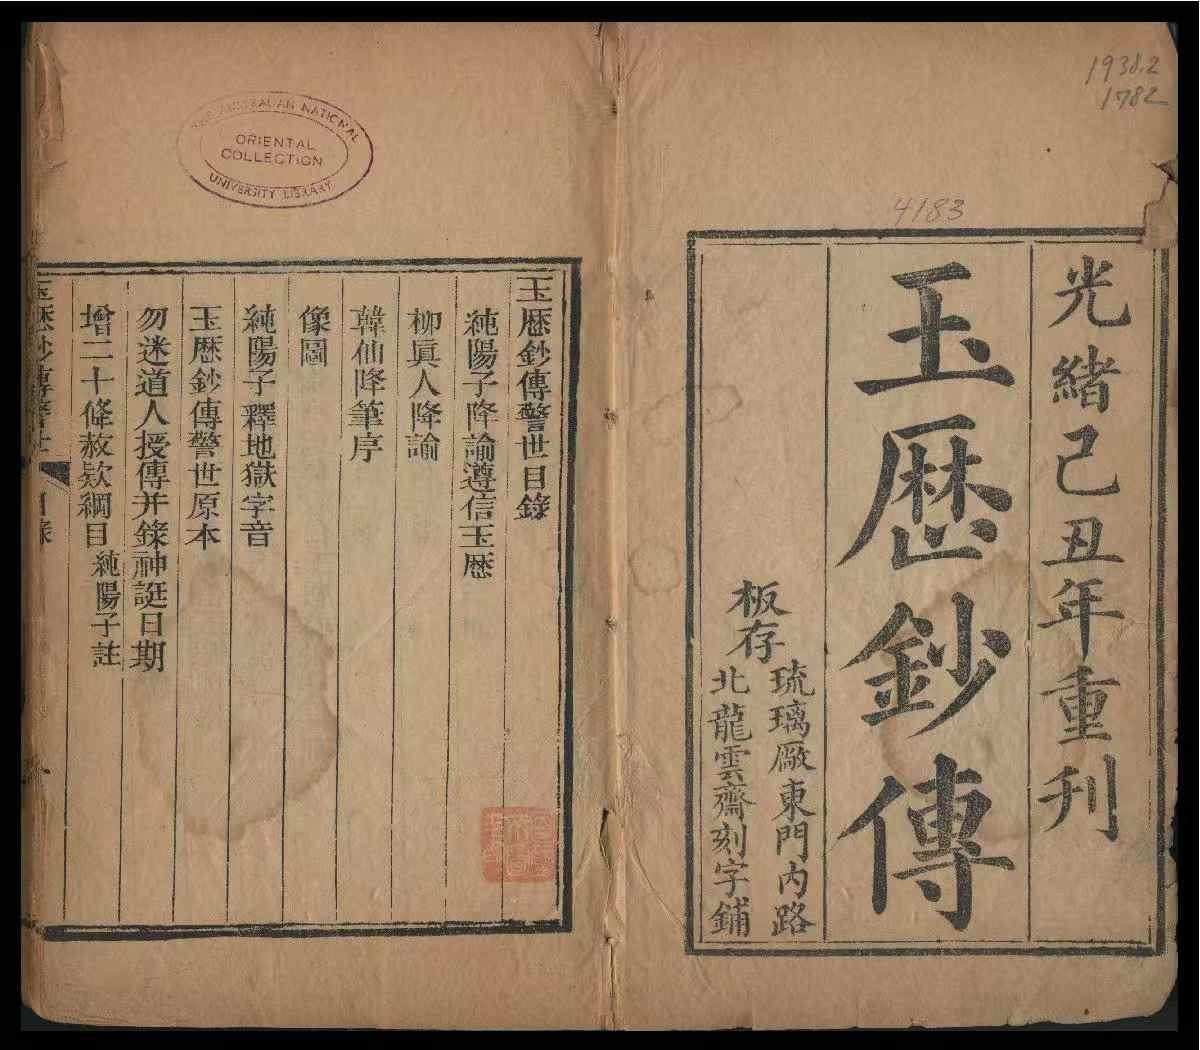 1938.2
1782
4183
光緒己丑年重刊
玉歷鈔傳
板存
琉璃厰東門內路
北龍雲齋刻字鋪
THE AUSTRALIAN NATIONAL
ORIENTAL
COLLECTION
UNIVERSITY LIBRARY
玉歷鈔傳警世目錄
純陽子降諭遵信玉歷
柳眞人降諭
韓仙降筆序
像圖
純陽子釋地獄字音
玉歷鈔傳警世原本
勿迷道人授傳并錄神誕日期
增二十條赦欵綱目 純陽子註
玉歷鈔傳警世 目錄